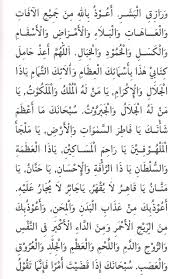 وَرَازِقَ الْبَشَرِ. أَعُوْذُ بِاللهِ مِنْ جَمِيْعِ الْآفَاتِ
وَالْعَاهَاتِ وَالْبَلَاءِ وَالْأَمْرَاضِ وَالْأَسْقَامِ
وَالْكَسَلِ وَالْجُمُوْدِ وَالْخَبَالِ. اَللّٰهُمَّ أَعِذْ حَامِلَ
كِتَابِيْ هٰذَا بِأَسْمَائِكَ الْعِظَامِ وَآلَائِكَ التَّمَامِ يَا ذَا
الْجَلَالِ وَالْإِكْرَامِ. يَا مَنْ لَهُ الْمُلْكُ وَالْمَلَكُوْتُ، يَا
مَنْ لَهُ الْجَلَالُ وَالْجَبَرُوْتُ. سُبْحَانَكَ مَا أَعْظَمَ
شَأْنَكَ يَا فَاطِرَ السَّمَوَاتِ وَالْأَرْضِ. يَا مَلْجَأَ
الْمَلْهُوْفِيْنَ يَا رَاحِمَ الْمَسَاكِيْنِ. يَا ذَا الْعَظَمَةِ
وَالسُّلْطَانِ يَا ذَا الرَّأْفَةِ وَالْإِحْسَانِ. يَا حَنَّانُ، يَا
مَنَّانُ يَا قَاهِرٌ لَا يُقْهَرُ. يَا جَائِرٌ لَا يُجَارُ عَلَيْهِ.
أَعُوْذُ بِكَ مِنْ عَذَابِ الْبَدَنِ وَالْمِحَنِ. وَأَعُوْذُ بِكَ
مِنَ الرِّيْحِ الْأَحْمَرِ وَمِنَ الدَّاءِ الْأَكْبَرِ فِي النَّفْسِ
وَالرُّوْحِ وَالدَّمِ وَاللَّحْمِ وَالْعَظْمِ وَالْجِلْدِ وَالْعُرُوْقِ
وَالْعَصَبِ. سُبْحَانَكَ إِذَا قَضَيْتَ أَمْرًا فَإِنَّمَا تَقُوْلُ